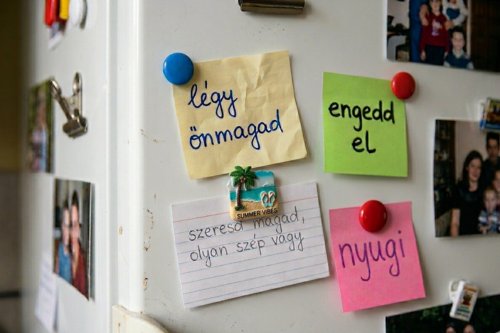 légy
önmagad
engedd
el
SUMMER VIBES
szeresd magad,
olyan szép vagy
nyugi